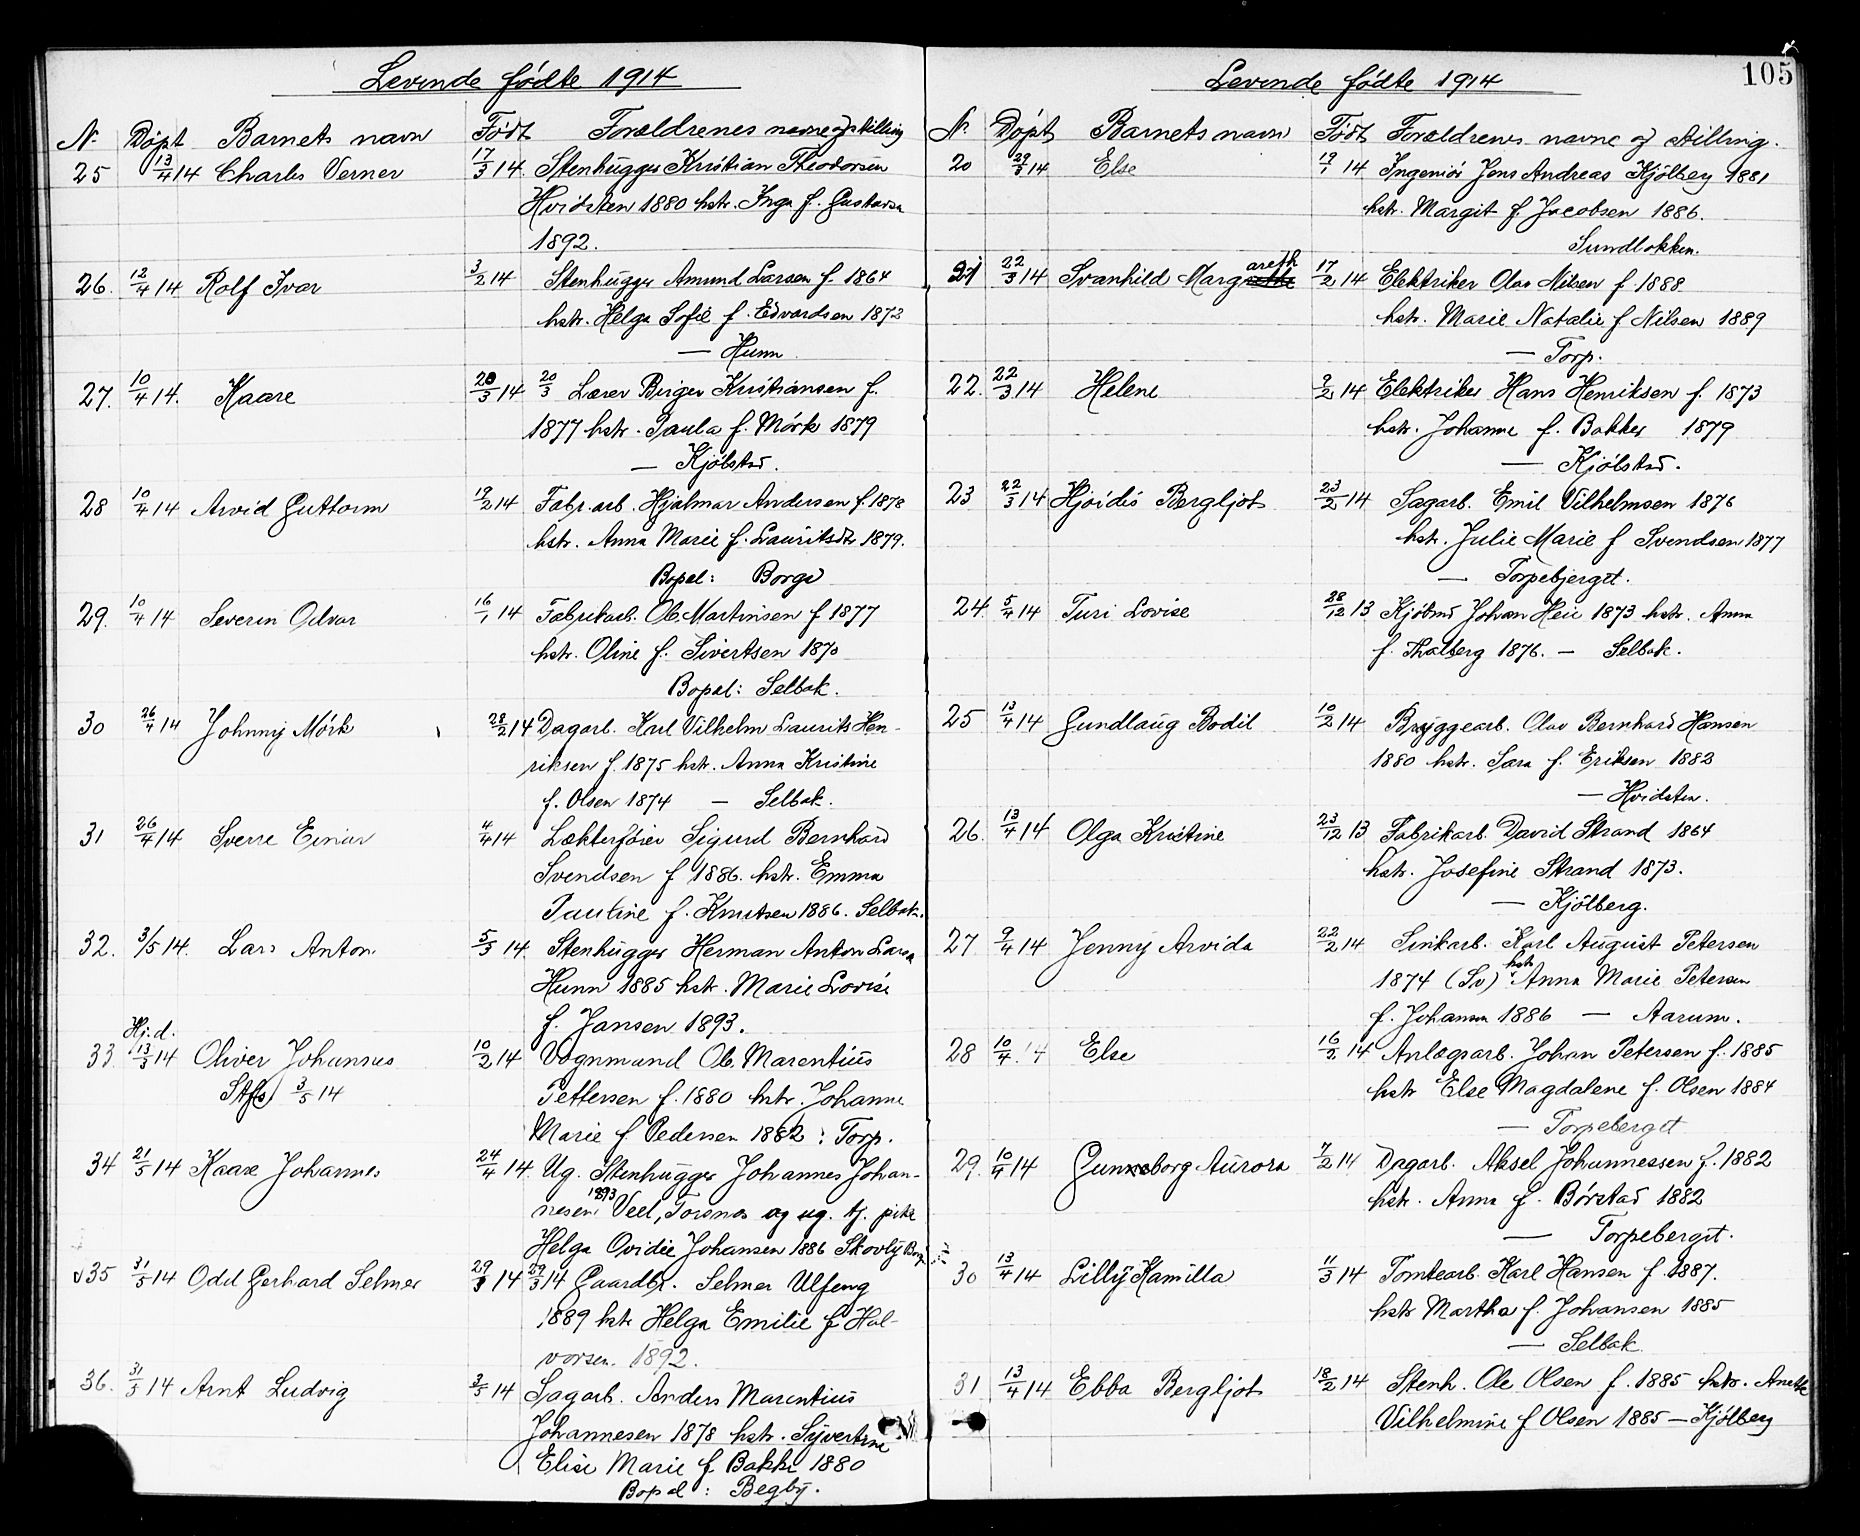 Levende fødte 1914
N. Døpt Barnets navn Født Forældrenes navne og stilling
25 13/4 14 Charles Verner 17/3 14. Stenhugger Kristian Theodorsen
Hvidsten 1880 hstr. Inga f. Gustavsen
1892.
26. 12/4 14 Rolf Ivar 3/2 14 Stenhugger Amund Larsen f. 1864
hstr. Helga Sofie f. Edvardsen 1873
— Hunn
27. 10/4 14. Kaare 20/3 14 20/3 Lærer Birger Kristiansen f.
1877 hstr. Paula f. Mørk 1879
— Kjølstad.
28 10/4 14 Arvid Guttorm 19/2 14 Fabr.arb. Hjalmar Andersen f. 1878
hstr. Anna Marie f. Lauritsdtr 1879.
Bopæl: Borge
29. 10/4 14 Severin Odvar 16/1 14 Fabrikarb. Ole Martinsen f 1877
hstr. Oline f. Sivertsen 1870
Bopæl: Selbak.
30 26/4 14 Johnny Mörk 28/2 14 Dagarb. Karl Vilhelm Laurits Hen-
riksen f. 1875 hstr. Anna Kristine
f. Olsen 1874 — Selbak.
31 26/4 14 Sverre Einar 4/4 14 Lækterfører Sigurd Bernhard
Svendsen f 1886. hstr. Emma
Pauline f. Knutsen 1886. Selbak.
32. 3/5 14. Lars Anton 5/3 14. Stenhugger Herman Anton Larsen
Hunn 1885 hstr. Marie Lovise
f. Jansen 1893.
Hj.d.
33. 13/3 14 Oliver Johannes 10/2 14 Vognmand Ole Marentius
Stfs) 3/5 14 Pettersen f. 1880 hstr. Johanne
Marie f Pedersen 1882 : Torp.
34 21/5 14 Kaare Johannes 24/4 14. Ug. Stenhugger Johannes Johan-
nesen 1893 Veel, Torsnes og ug. tj. pike
Helga Ovidie Johansen 1886 Skovly Borge
35 31/5 14 Odd Gerhard Selmer 29/3 14 29/3 14 Gaardbr. Selmer Ulfeng
1889 hstr Helga Emilie f Hal-
vorsen. 1892.
36. 31/5 14 Arnt Ludvig 3/5 14 Sagarb. Anders Marentius
Johannesen 1878 hstr. Syvertine
Elise Marie f Bakke 1880
Bopæl : Begby.
105
Levende fødte 1914
N. Døpt Barnets navn Født Forældrenes navne og stilling.
20 29/3 14 Else 19/1 14 Ingeniør Jens Andreas Kjölberg 1881
hstr. Margit f. Jacobsen 1886.
Sundløkken.
21 22/3 14 Svanhild Margareth 17/2 14 Elektriker Olav Nilsen f 1888
hstr. Marie Natalie f Nilsen 1889
— Torp.
22. 22/3 14 Helene 9/2 14 Elektriker Hans Henriksen f. 1873
hstr. Johanne f. Bakker 1879
— Kjølstad.
23 22/3 14 Hjørdis Bergljot 23/2 14 Sagarb. Emil Vilhelmsen 1876
hstr. Julie Marie f Svendsen 1877
— Torpebjerget.
24. 5/4 14 Turi Lovise 28/12 13 Kjøbmd Johan Heie 1873 hstr. Anna
f. Thalberg 1876. — Selbak.
25 13/4 14 Gundlaug Bodil 10/2 14 Bryggearb. Olav Bernhard Hansen
1880 hstr. Sara f. Eriksen 1882
— Hvidsten.
26. 13/4 14 Olga Kristine 23/12 13 Fabrikarb. David Strand 1864
hstr. Josefine Strand 1873.
— Kjölberg.
27 9/4 14 Jenny Arvida 22/2 14 Sinkarb. Karl August Petersen
1874 (Sv) hstr Anna Marie Petersen
f. Johansen 1886 — Aarum.
28 10/4 14 Else 16/2 14 Anlægsarb. Johan Petersen f. 1885
hstr Else Magdalene f. Olsen 1884
— Torpeberget
29. 10/4 14 Gunneborg Aurora 7/2 14 Dagarb. Aksel Johannessen f. 1882
hstr. Anna f. Børstad 1882
— Torpeberget.
30 13/4 14 Lilly Kamilla 11/3 14 Tomtearb. Karl Hansen f. 1887.
hstr Martha f. Johansen 1885
— Selbak
31 13/4 14 Ebba Bergljot 18/2 14 Stenh. Ole Olsen f. 1885 hstr. Anette
Vilhelmine f Olsen 1885 — Kjölberg